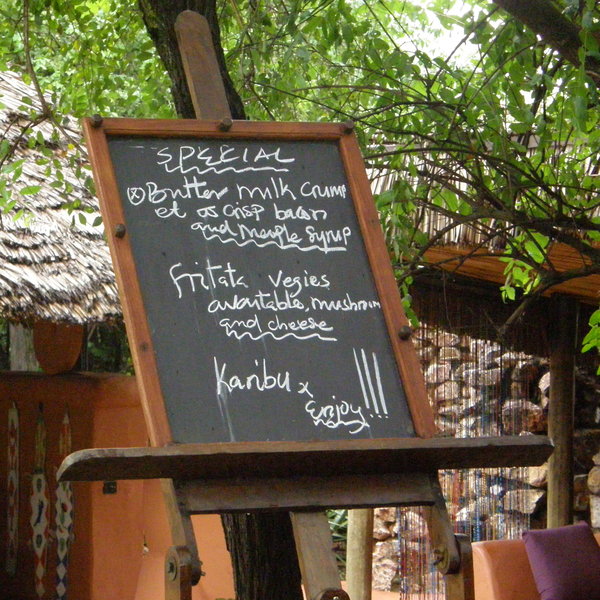 SPECIAL
Butter milk crump
et os crisp bacon
and maple syrup
fritata vegies
avoutable, mushroom
and cheese
Karibu x !!!
Enjoy